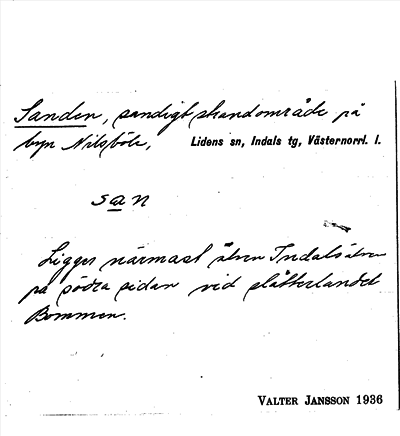 Sanden, sandigt strandområde på
byn Nilsböle, Lidens sn, Indals tg, Västernorrl. l.
san
Ligger närmast älven Indalsälven
på södra sidan vid slåtterlandet
Bommen.
VALTER JANSSON 1936